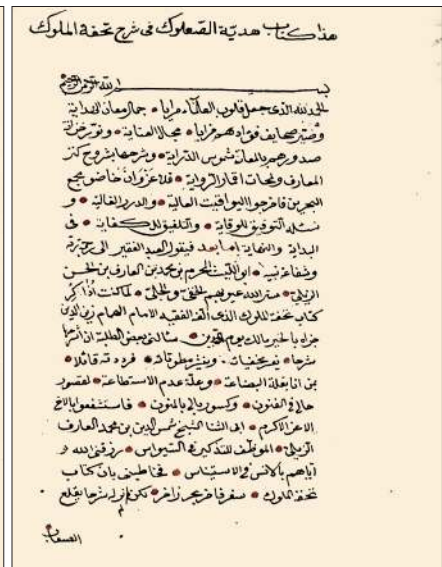 هذا كتاب هدية الصعلوك فى شرح تحفة الملوك
بسم الله الرحمن الرحيم
الحمد لله الذى جعل قلوب العلماء مرايا جمال معان الهداية
وصير صحايف فؤادهم مزايا مجالا العناية ونور خزانة
صدورهم بالمعانة شموس الدراية وشرحها بشروح كنز
المعارف ولمحات اقمار الرواية فلا غرو ان خاضو مجمع
البحرين فاخرجوا اليواقيت العالية والدرر الغالية و
نسئله التوفيق للوقاية والتلفيق للكفاية فى
البداية والنهاية اما بعد فيقول العبد الفقير الى رحمة ربه
وشفاعة نبيه ابو الليث المحرم بن محمد بن العارف بن الحسن
الزيلى ستر الله عيوبهم الخفى والجلى لما كنت اذاكر
كتاب تحفة الملوك الذى الفه الفقيه الامام الهمام زين الدين
جزاه بالخير مالك يوم الدين سالنى بعض الطلبة ان اشرحها
شرحا يفسر مخفيات وينشر مطويات فرددته قائلا
بمن انا بقلة البضاعة وعلة عدم الاستطاعة لقصور
حالى فى الفنون وكسور بالى بالمنون فاستشفعوا بالاخ
الاعز الاكرم اعنى الشيخ شمس الدين بن محمد العارف
الزيلى الموظف للتذكير فى السيواس رزقنى الله و
اياهم بالانس والاستيناس فخاطبنى بان كتاب
تحفة الملوك سفر فاخر بحر زاخر لكن لم نر له شرحا يقلع
الصعاب